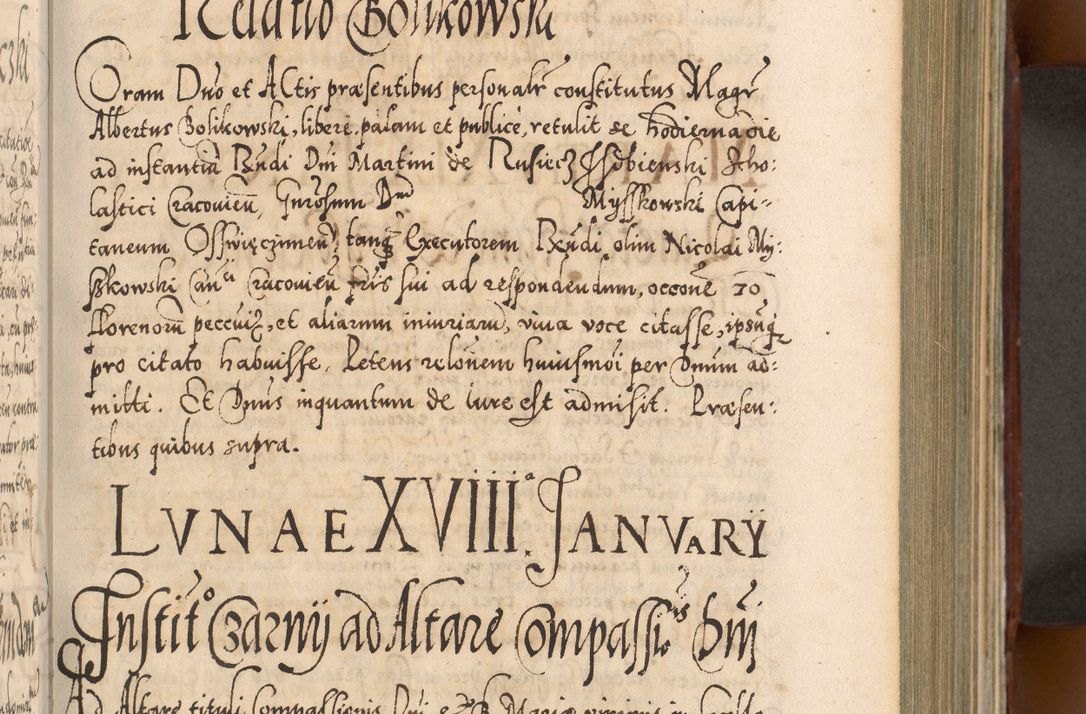 Relatio Bolikowski
Coram Dno et Actis præsentibus personalr constitutus Magr
Albertus Bolikowski, libere, palam et publice, retulit se hodierna die
ad instantia Rndi Dni Martini de Rusiecz Scho:
lastici Cracovien, Gnrosum Dnm Mysskowski Capi-
taneum Osswięczimen, tanq Executorem Rndi olim Nicolai My:
szkowski Canci Cracovien fris sui ad respondendum, occone 70
florenoru peccuiz, et aliarum iniuriaru, viua voce citasse, ipsuq
pro citato habuisse. Petens relonem huiusmoi per Dnum ad:
mitti. Et Dnus inquantum de iure est admisit. Præsen:
tibus quibus supra.
LVNAE XVIII.a JANVARY
Instito Czarnij ad Altare Compassiois Dni
Ad Altare tituli Compassionis Dni et B. Mariæ virginis in